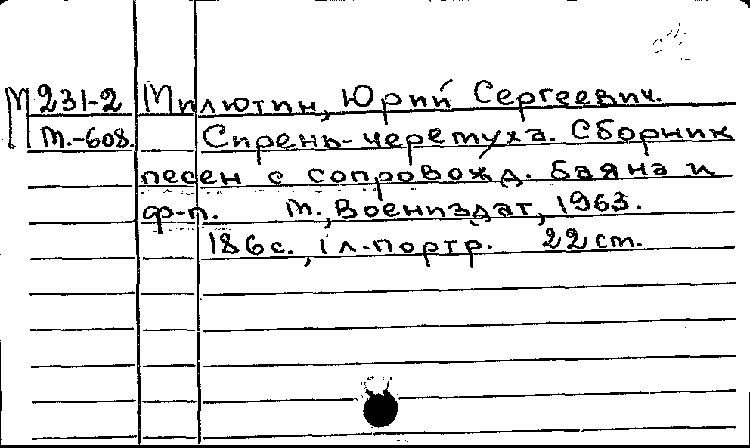 М 231-2 Милютин, Юрий Сергеевич.
М.-608. Сирень-черемуха. Сборник
песен с сопровожд. баяна и
ф-п. М., Воениздат, 1963.
186с., 1 л. портр. 22 см.